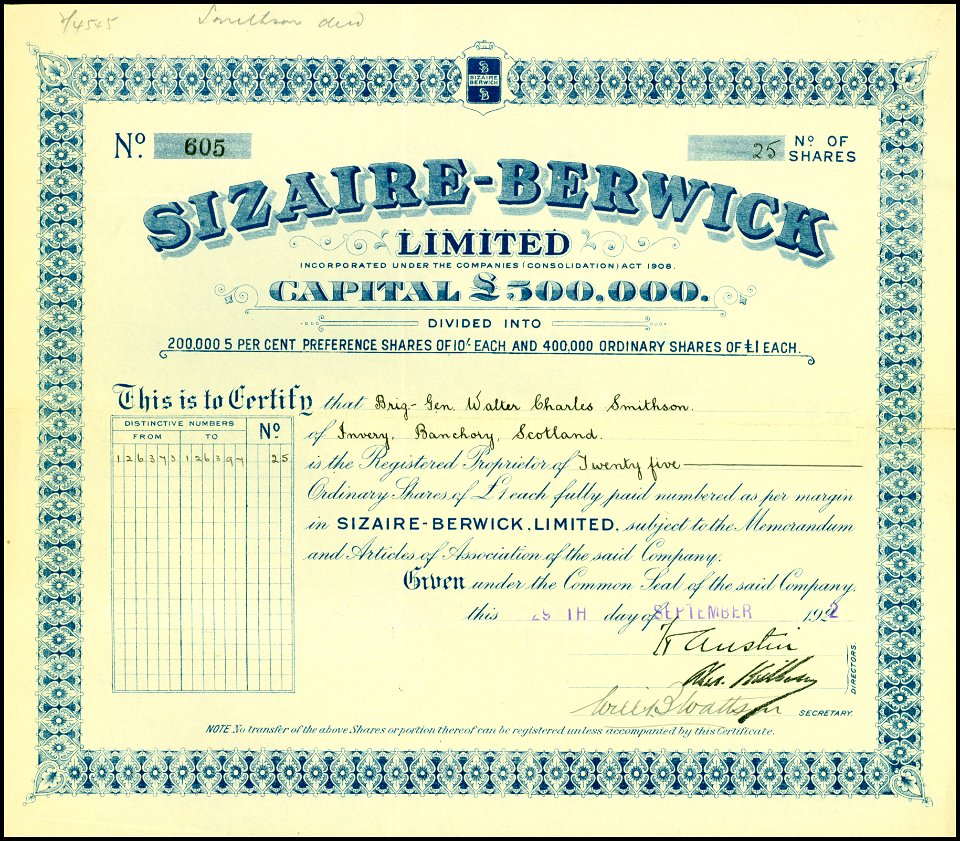 4545 Smithson
SIZAIRE
BERWICK
Nº. 605
25 Nº OF
SHARES
SIZAIRE-BERWICK
LIMITED
INCORPORATED UNDER THE COMPANIES (CONSOLIDATION) ACT 1908.
CAPITAL £500,000.
DIVIDED INTO
200,000 5 PER CENT PREFERENCE SHARES OF 10/- EACH AND 400,000 ORDINARY SHARES OF £1 EACH.
This is to Certify that Brig-Gen. Walter Charles Smithson.
of Invery, Banchory, Scotland.
is the Registered Proprietor of Twenty five
Ordinary Shares of £1 each fully paid numbered as per margin
in SIZAIRE-BERWICK, LIMITED, subject to the Memorandum
and Articles of Association of the said Company.
DISTINCTIVE NUMBERS Nº
FROM TO
126373 126397 25
Given under the Common Seal of the said Company,
this 29TH day of SEPTEMBER 1922
H Austin
DIRECTORS.
SECRETARY.
NOTE No transfer of the above Shares or portion thereof can be registered unless accompanied by this Certificate.